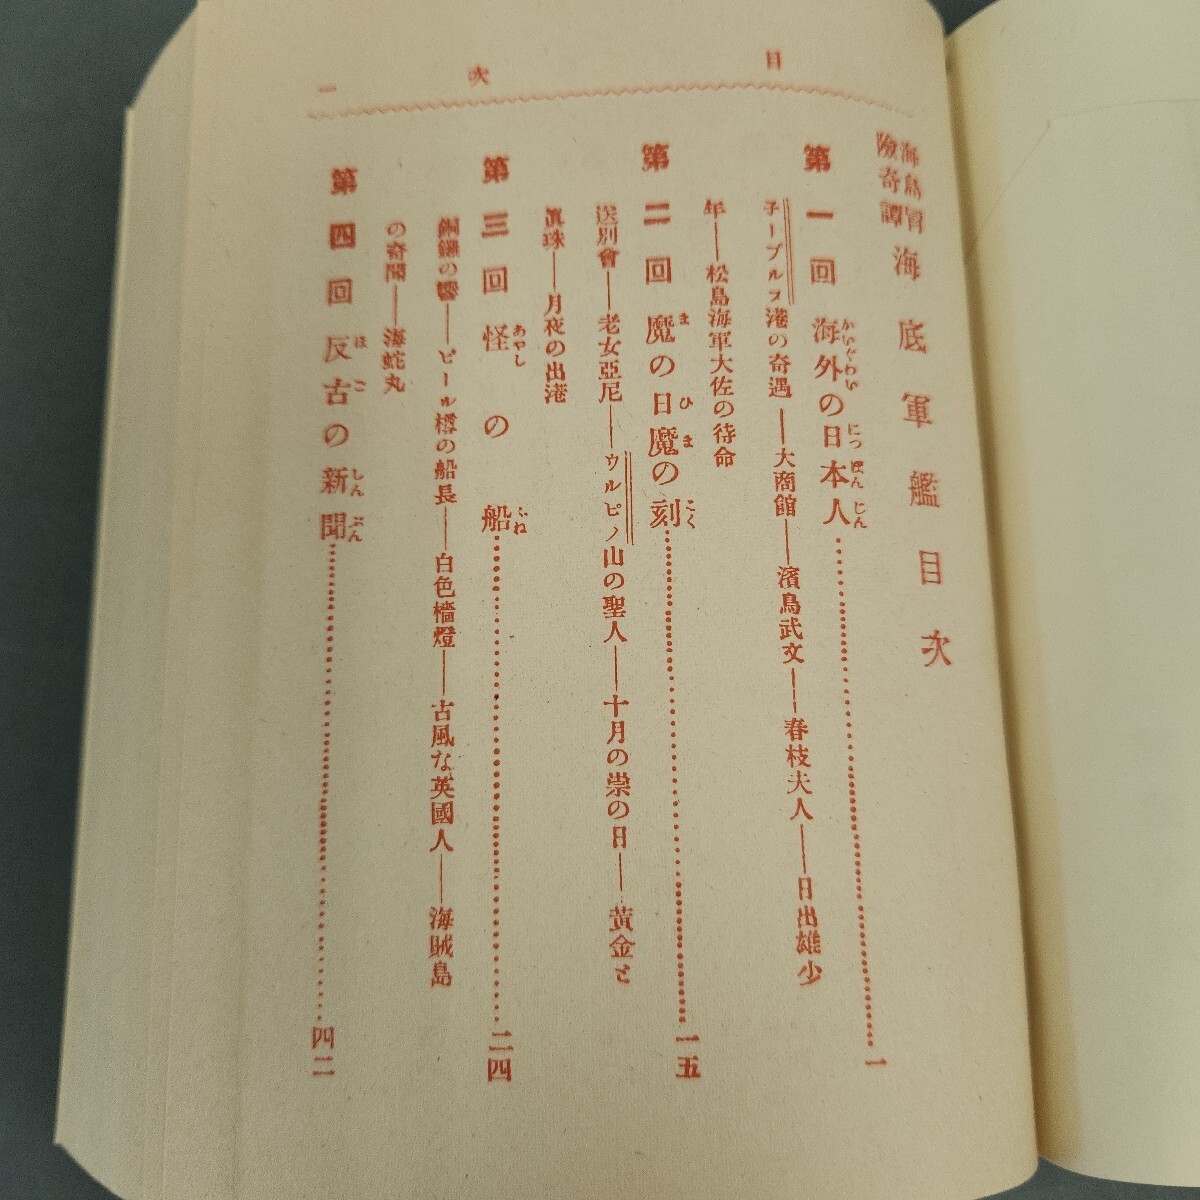 目次 一
海島冒險奇譚 海底軍艦目次
第一回 海外の日本人……一
子ープルス港の奇遇――大商館――濱島武文――春枝夫人――日出雄少
年――松島海軍大佐の待命
第二回 魔の日魔の刻……一五
送別會――老女亞尼――ウルピノ山の聖人――十月の祟の日――黃金と
眞珠――月夜の出港
第三回 怪の船……二四
銅鑼の響――ビール樽の船長――白色檣燈――古風な英國人――海賊島
の奇聞――海蛇丸
第四回 反古の新聞……四二